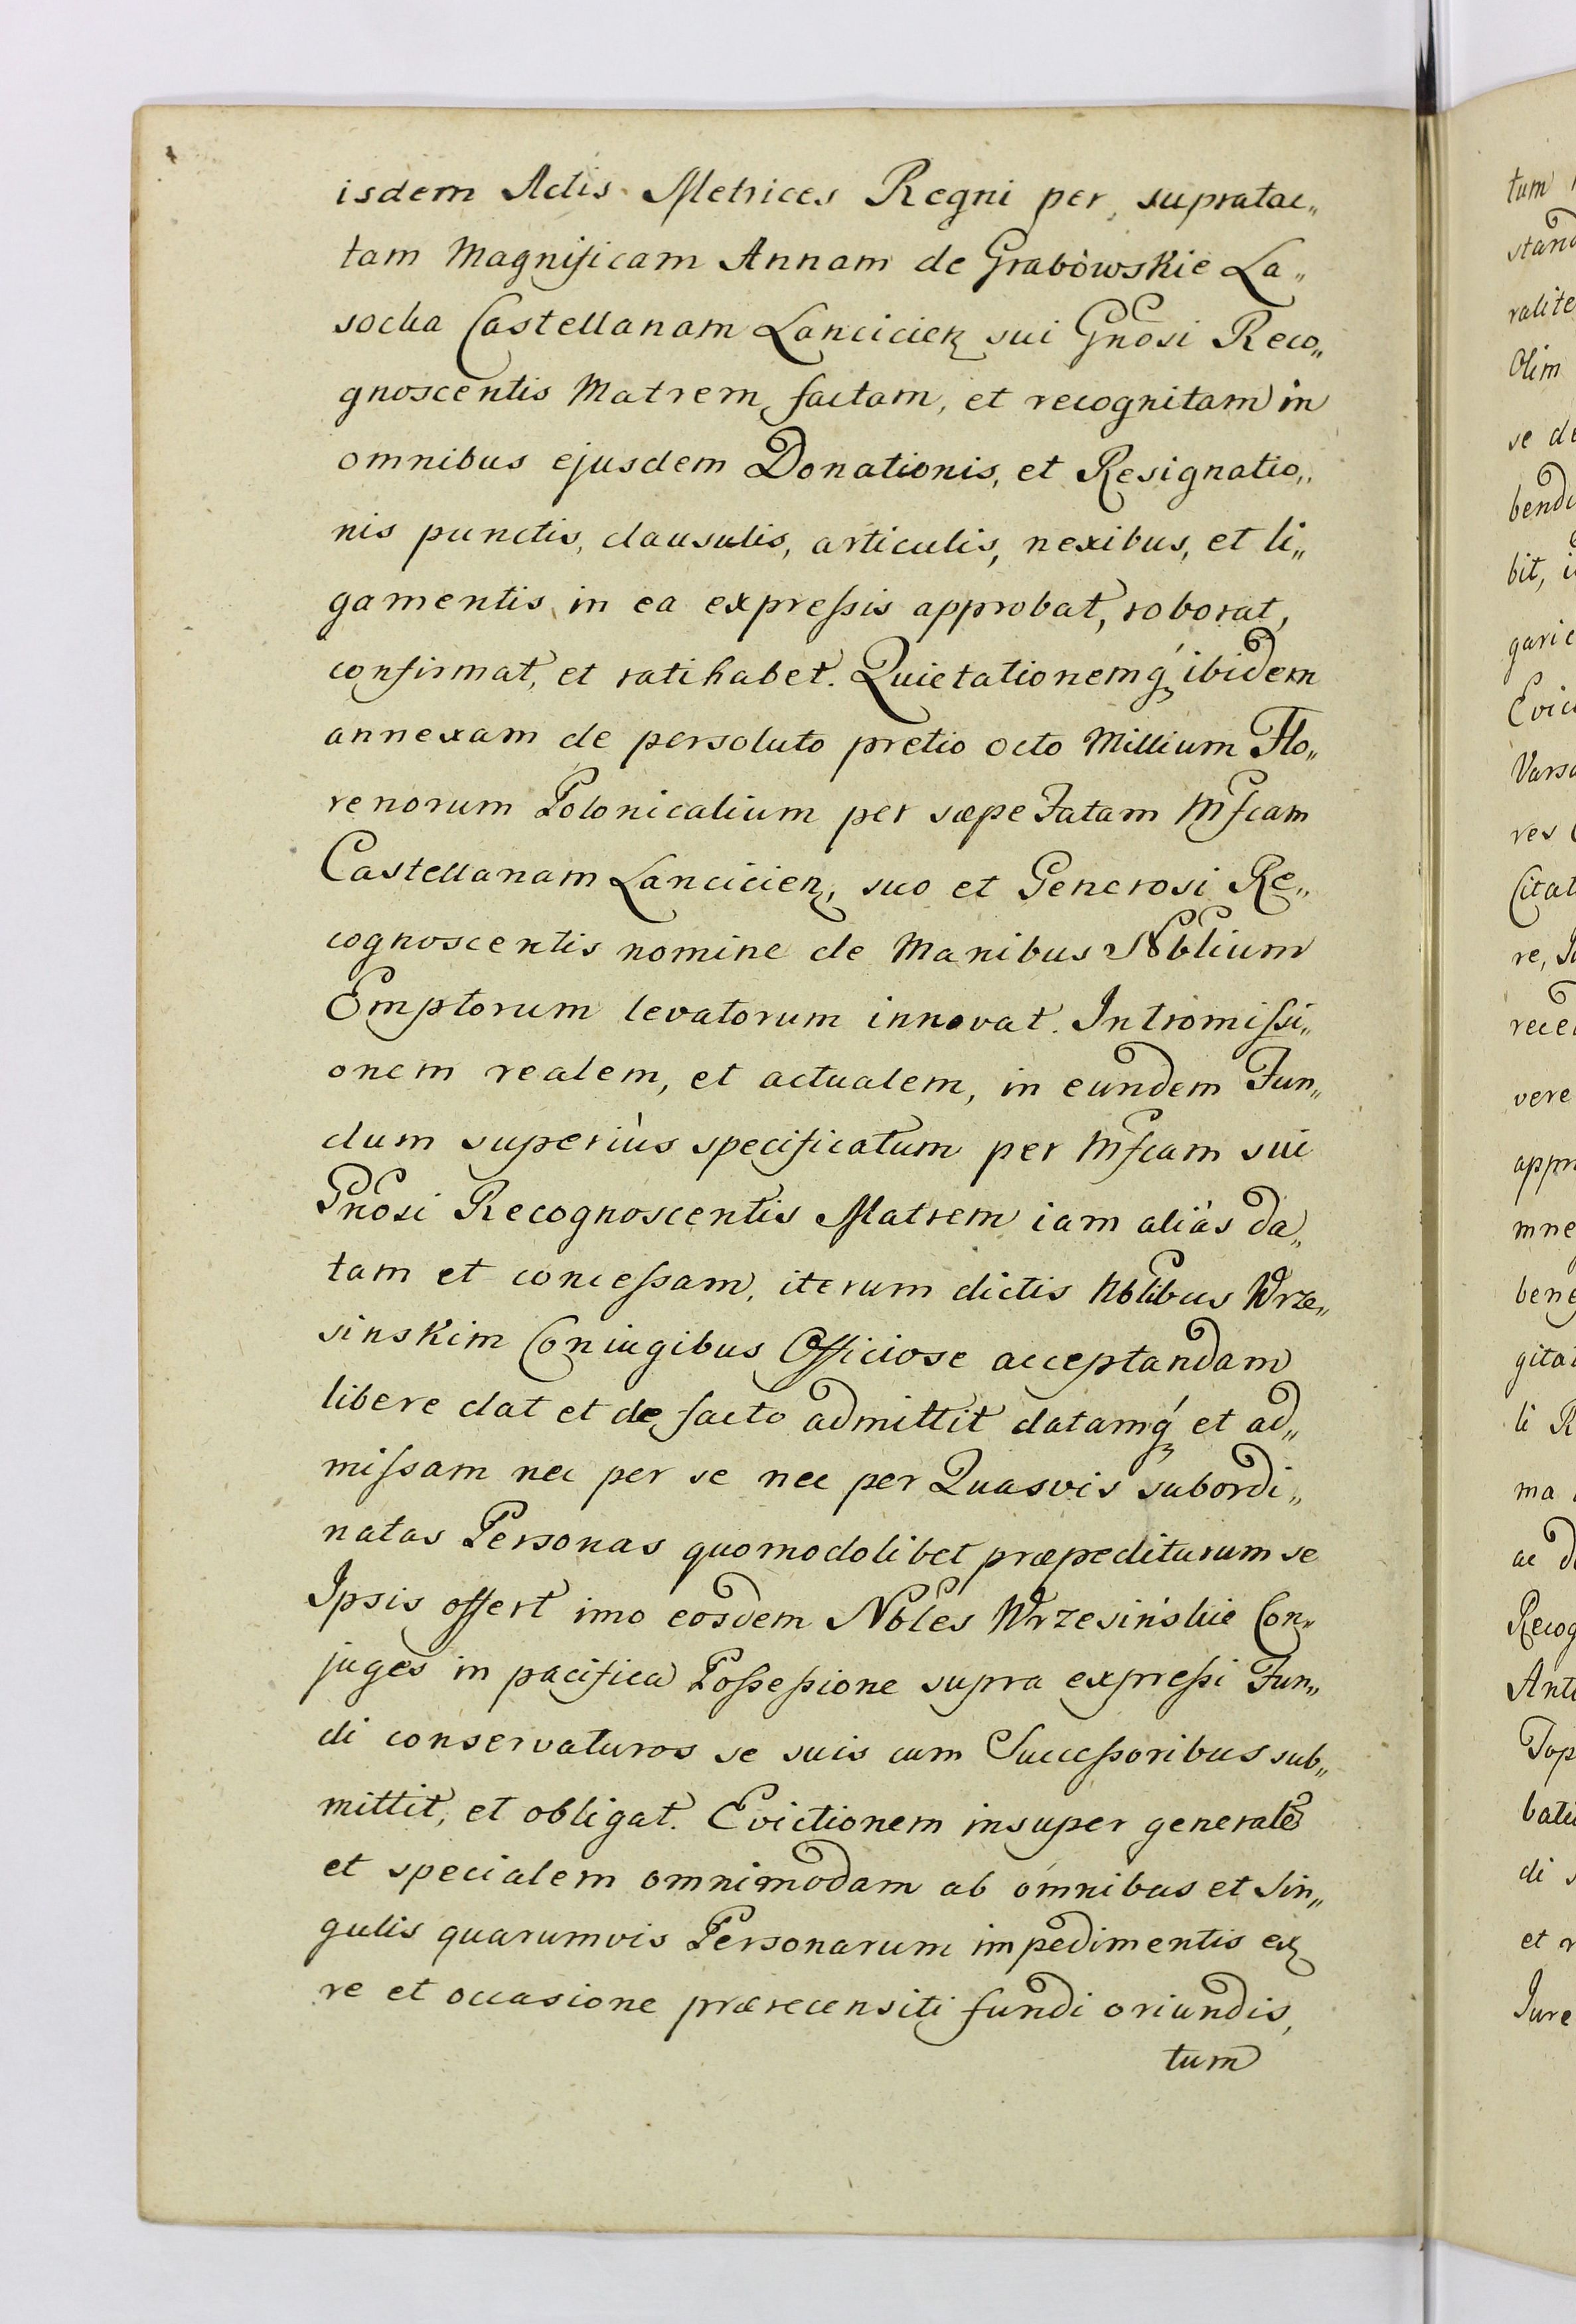 isdem Actis Metrices Regni per supratac„
tam Magnificam Annam de Grabòwskie La„
socka Castellanam Lancicien sui Gnosi Reco„
gnoscentis Matrem factam, et recognitam in
omnibus ejusdem Donationis, et Resignatio„
nis punctis, clausulis, articulis, nexibus, et li„
gamentis in ea expreſsis approbat, roborat,
confirmat, et ratihabet. Quietationemq́ ibidem
annexam de persoluto pretio octo Millium Flo„
renorum Polonicalium per sæpe Fatam Mfcam
Castellanam Lancicien, suo et Generosi Re„
cognoscentis nomine de Manibus Nblium
Emptorum levatorum innovat. Intromiſsi„
onem realem, et actualem, in eundem Fun„
dum superiùs specificatum per Mfcam sui
Gnosi Recognoscentis Matrem iam aliàs da„
tam et conceſsam, iterum dictis Nblibus Wrze„
sinskim Coniugibus Officiose acceptandam
libere dat et de facto admittit datamq́ et ad„
miſsam nec per se nec per Quasvis subordi„
natas Personas quomodolibet præpediturum se
Ipsis offert imo eosdem Nbles Wrzesińskie Con„
juges in pacifica Poſseſsione supra expreſsi Fun„
di conservaturos se suis cum Succeſsoribus sub„
mittit, et obligat. Evictionem insuper generale
et specialem omnimodam ab omnibus et sin„
gulis quarumvis Personarum impedimentis ex
re et occasione prærecensiti fundi oriundis,
tum
tum
stand
ralite
Olim
se de
bend
bit, i
garie
Evic
Vars
res
Citat
re, 
rece
vere
appr
mne
bene
gita
li R
ma
ac d
Recog
Ant
Top
bati
di s
et r
Iure